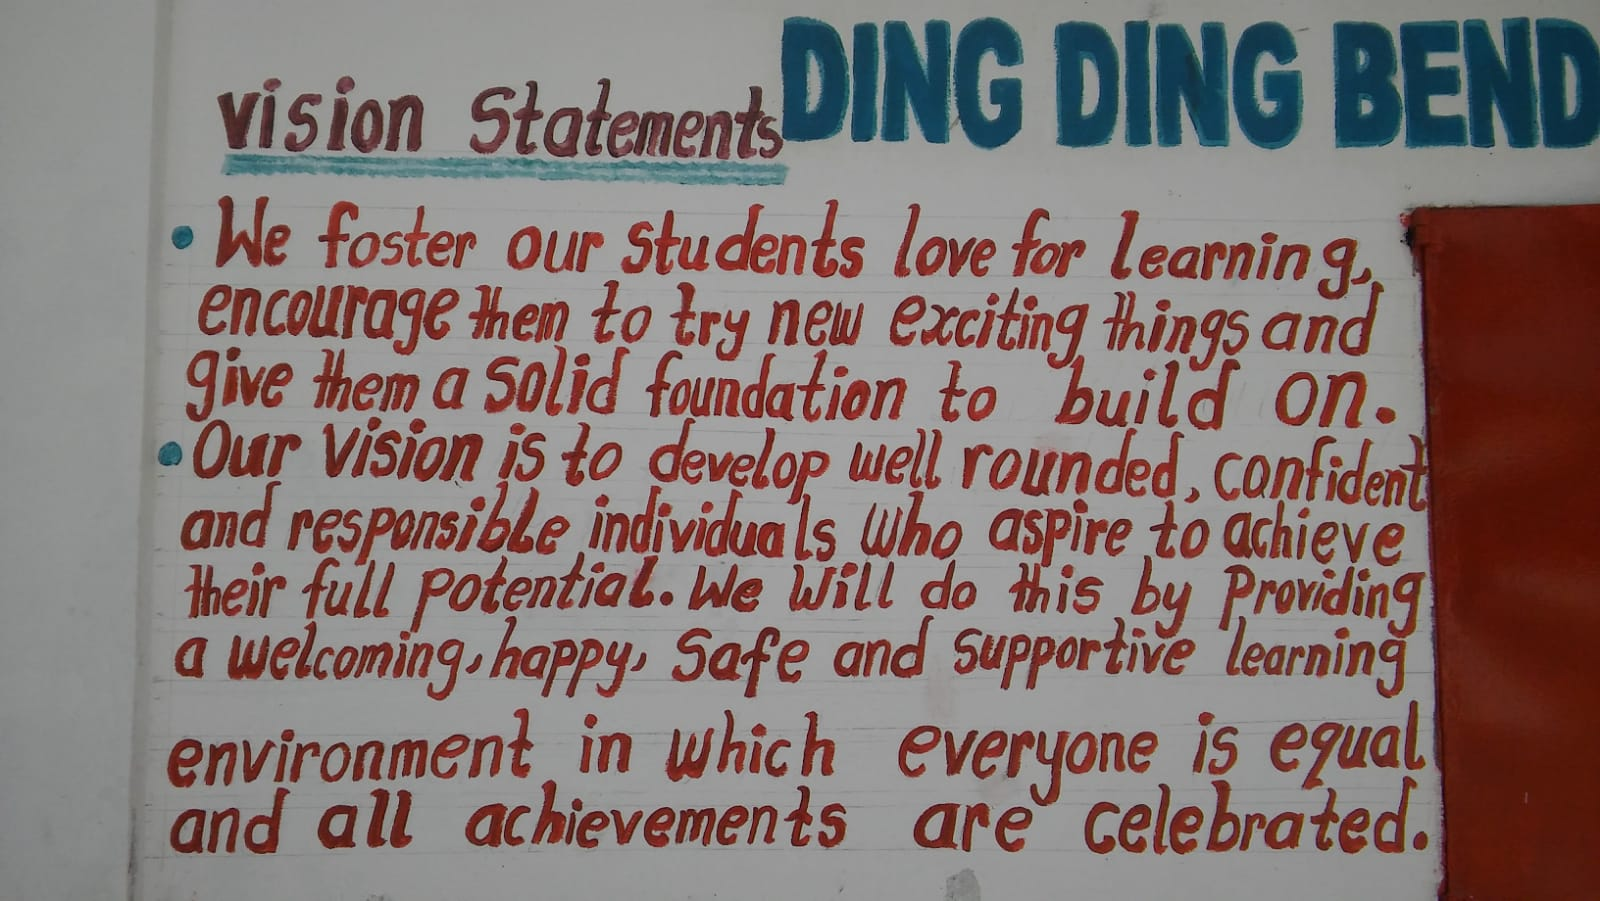 DING DING BEND
Vision Statements
• We foster our students love for learning,
encourage them to try new exciting things and
give them a solid foundation to build on.
• Our vision is to develop well rounded, confident
and responsible individuals who aspire to achieve
their full potential. We will do this by Providing
a welcoming, happy, safe and supportive learning
environment in which everyone is equal
and all achievements are celebrated.